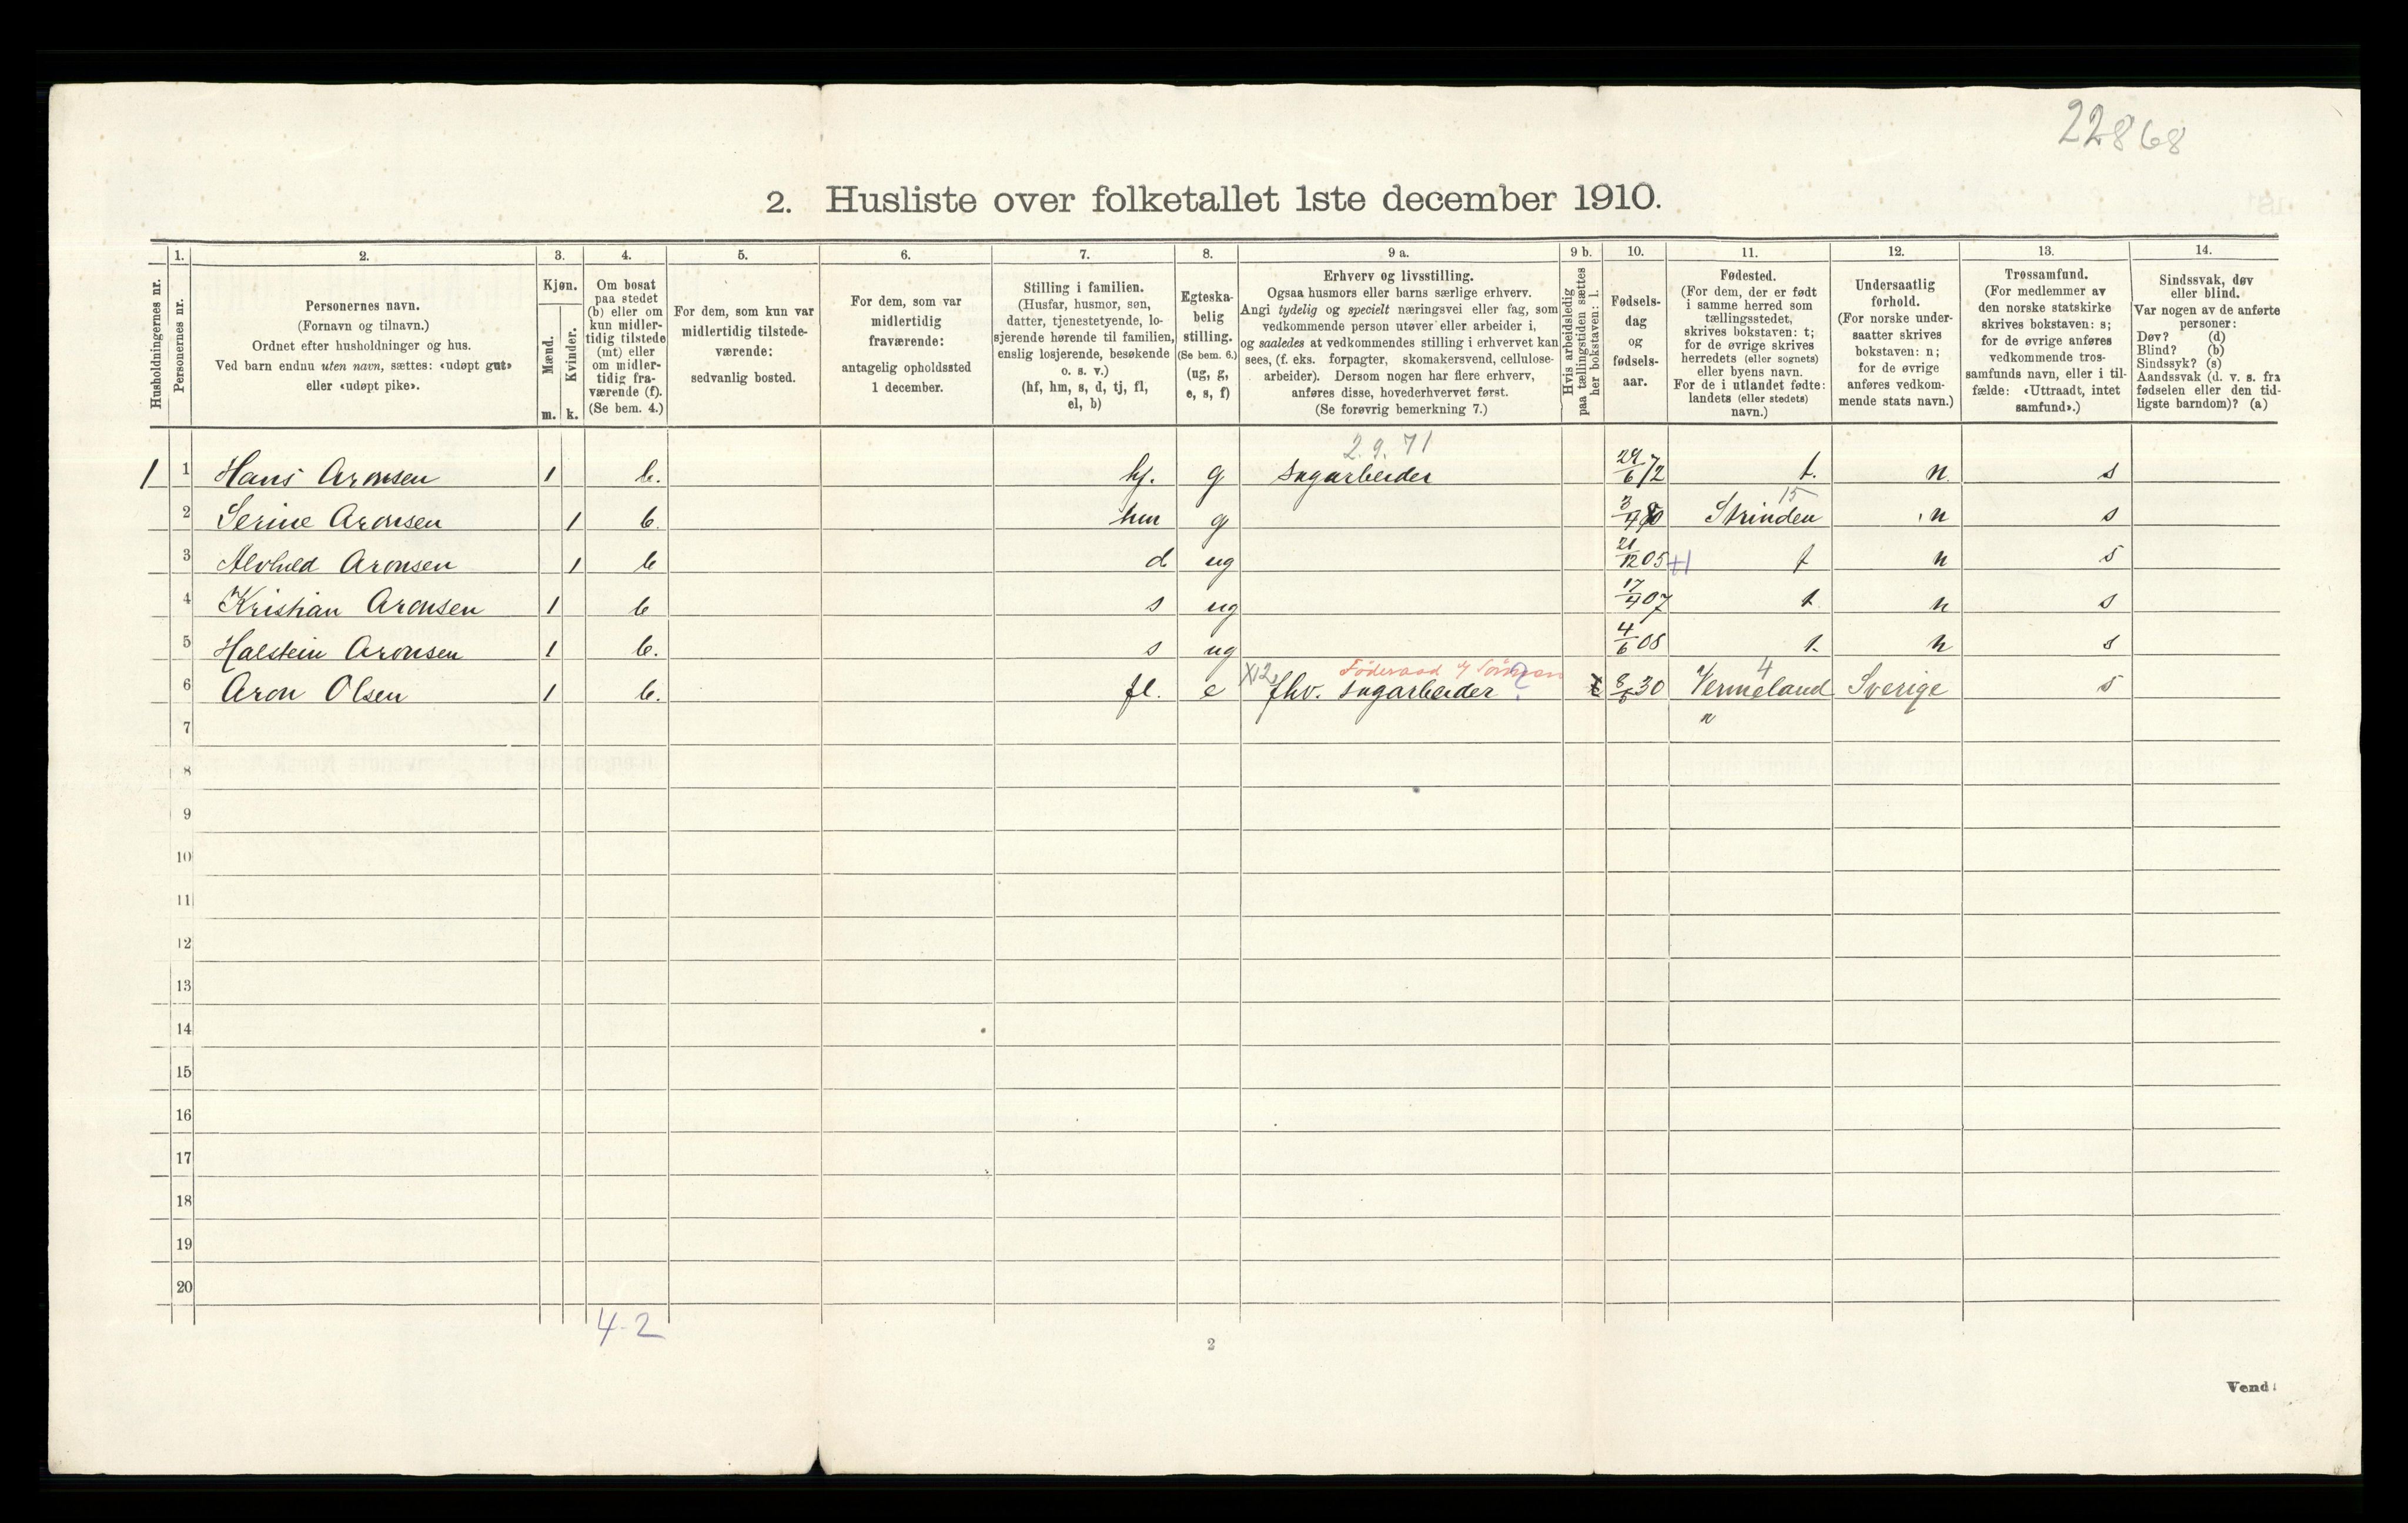 22868
2. Husliste over folketallet 1ste december 1910.
Husholdningernes nr.
1. Personernes nr.
2. Personernes navn.
(Fornavn og tilnavn.)
Ordnet efter husholdninger og hus.
Ved barn endnu uten navn, sættes: «udøpt gut»
eller «udøpt pike».
3. Kjøn.
Mænd. m.
Kvinder. k.
4. Om bosat
paa stedet
(b) eller om
kun midler-
tidig tilstede
(mt) eller
om midler-
tidig fra-
værende (f).
(Se bem. 4.)
5. For dem, som kun var
midlertidig tilstede-
værende:
sedvanlig bosted.
6. For dem, som var
midlertidig
fraværende:
antagelig opholdssted
1 december.
7. Stilling i familien.
(Husfar, husmor, søn,
datter, tjenestetyende, lo-
sjerende hørende til familien,
enslig losjerende, besøkende
o. s. v.)
(hf, hm, s, d, tj, fl,
el, b)
8. Egteska-
belig
stilling.
(Se bem. 6.)
(ug, g,
e, s, f)
9 a. Erhverv og livsstilling.
Ogsaa husmors eller barns særlige erhverv.
Angi tydelig og specielt næringsvei eller fag, som
vedkommende person utøver eller arbeider i,
og saaledes at vedkommendes stilling i erhvervet kan
sees, (f. eks. forpagter, skomakersvend, cellulose-
arbeider). Dersom nogen har flere erhverv,
anføres disse, hovederhvervet først.
(Se forøvrig bemerkning 7.)
9 b. Hvis arbeidsledig
paa tællingstiden sættes
her bokstaven: l.
10. Fødsels-
dag
og
fødsels-
aar.
11. Fødested.
(For dem, der er født
i samme herred som
tællingsstedet,
skrives bokstaven: t;
for de øvrige skrives
herredets (eller sognets)
eller byens navn.
For de i utlandet fødte:
landets (eller stedets)
navn.)
12. Undersaatlig
forhold.
(For norske under-
saatter skrives
bokstaven: n;
for de øvrige
anføres vedkom-
mende stats navn.)
13. Trossamfund.
(For medlemmer av
den norske statskirke
skrives bokstaven: s;
for de øvrige anføres
vedkommende tros-
samfunds navn, eller i til-
fælde: «Uttraadt, intet
samfund».)
14. Sindssvak, døv
eller blind.
Var nogen av de anførte
personer:
Døv? (d)
Blind? (b)
Sindssyk? (s)
Aandssvak (d. v. s. fra
fødselen eller den tid-
ligste barndom)? (a)
2.9.71
1 1 Hans Aronsen 1 b. hf. g Sagarbeider 29/6 72 t. n. s
15
2 Serine Aronsen 1 b. hm g 3/4 80 Strinden n s
3 Alvhild Aronsen 1 b d ug 21/12 05 +1 t n s
4 Kristian Aronsen 1 b s ug 17/4 07 t. n s
5 Halstein Aronsen 1 b. s ug 4/6 08 t. n s
X12 Føderaad 4
6 Aron Olsen 1 b. fl. e fhv. Sagarbeider ? 8/6 30 Vermeland Sverige s
7 n
8
9
10
11
12
13
14
15
16
17
18
19
20
4-2
2
Vend!